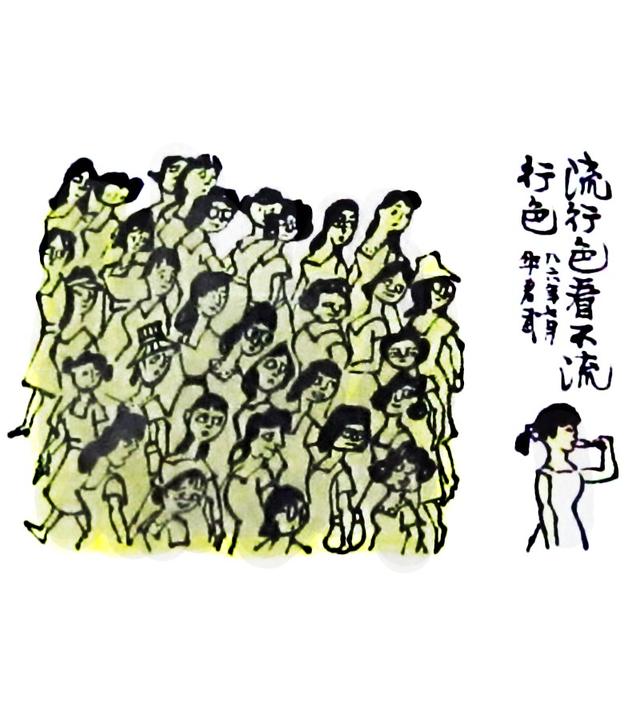 流行色看不流
行色
八六年七月
华君武